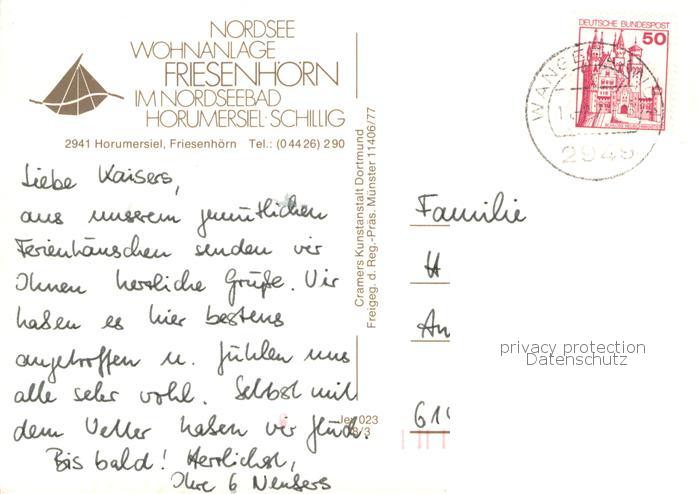 NORDSEE
WOHNANLAGE
FRIESENHÖRN
IM NORDSEEBAD
HORUMERSIEL-SCHILLIG
2941 Horumersiel, Friesenhörn Tel.: (0 44 26) 2 90
Liebe Kaisers,
aus unserem gemütlichen
Ferienhäuschen senden wir
Ihnen herzliche Grüße. Wir
haben es hier bestens
angetroffen u. fühlen uns
alle sehr wohl. Selbst mit
dem Wetter haben wir Glück.
Bis bald! Herzlichst,
Ihre 6
Cramers Kunstanstalt Dortmund
Freigeg. d. Reg.-Präs. Münster 11406/77
Jev 023
3/3
DEUTSCHE BUNDESPOST
50
2949
Familie
H
An
61
privacy protection
Datenschutz